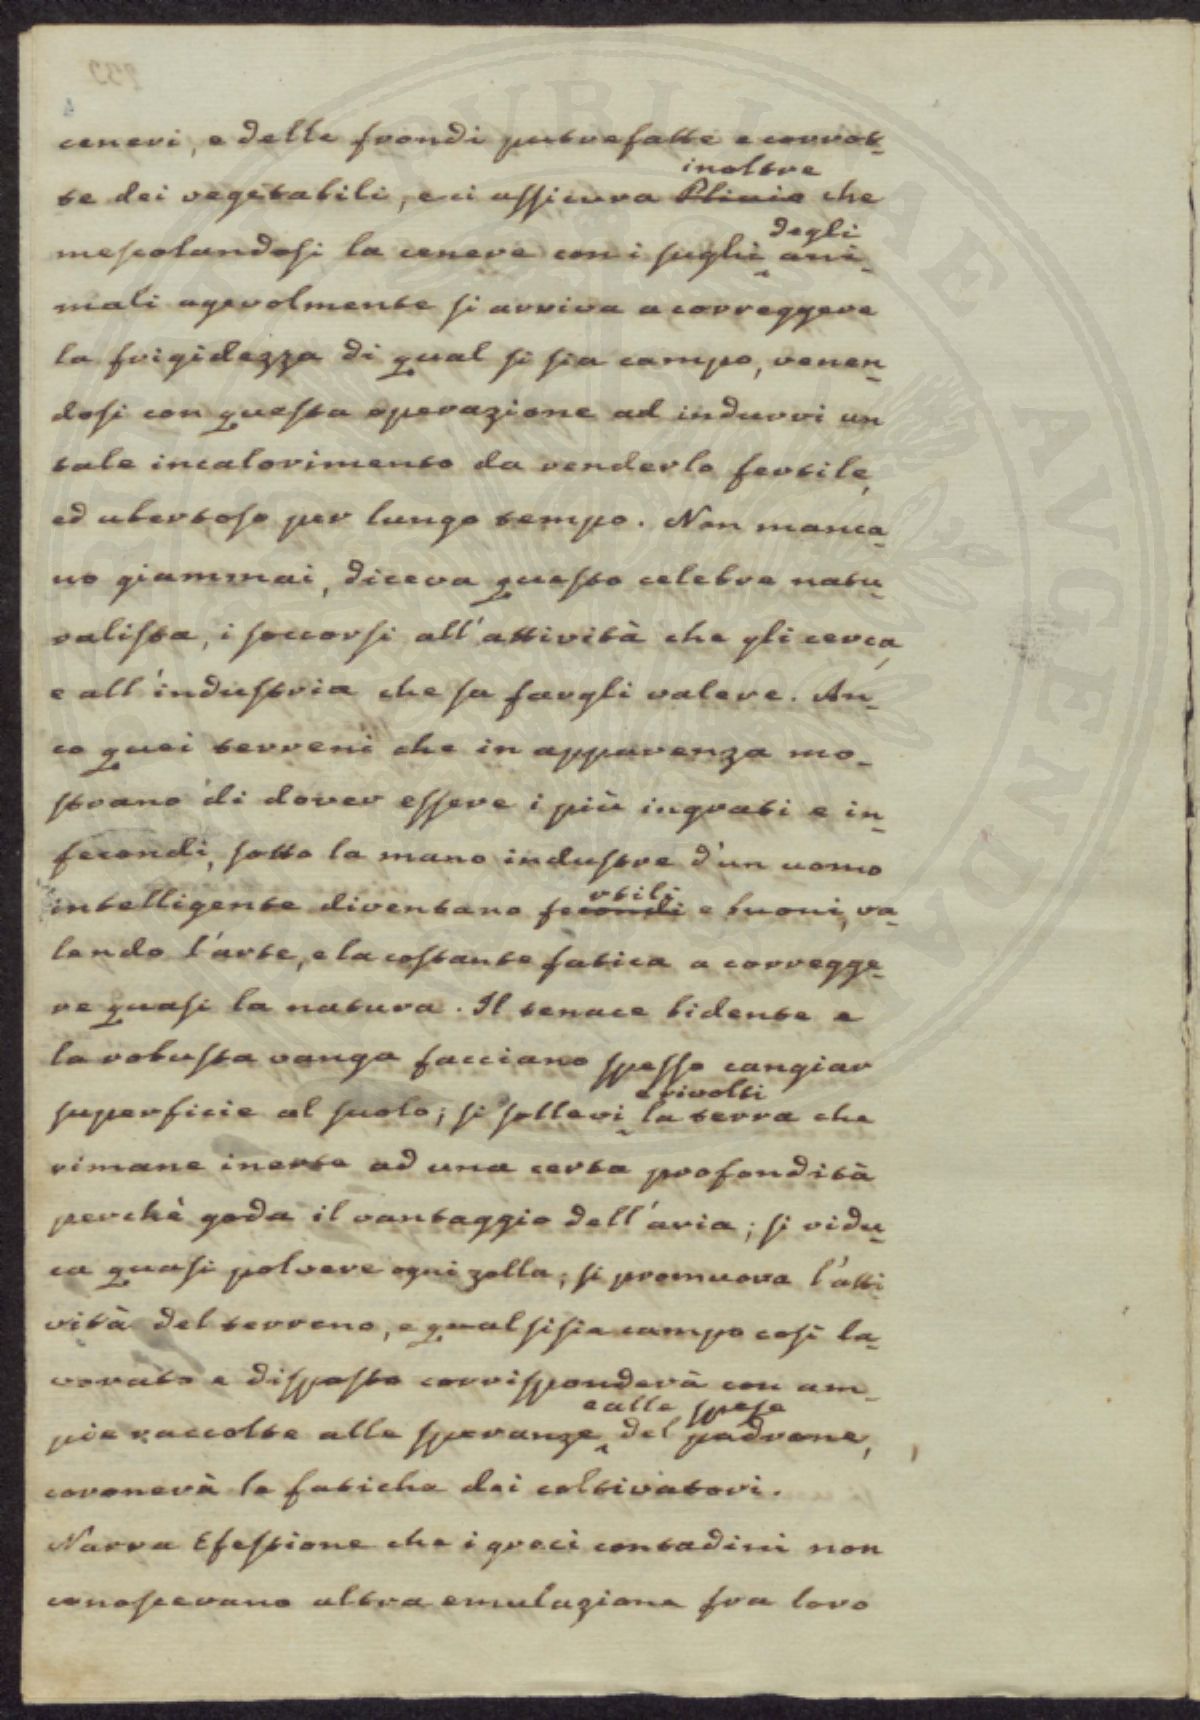 ceneri, e delle frondi putrefatte e corrot-
te dei vegetabili, e ci assicura Plinio che
inoltre
mescolandosi la cenere con i sughi ani-
degli
mali agevolmente si arriva a correggere
la frigidezza di qual si sia campo, venen-
dosi con questa operazione ad indurvi un
tale incalorimento da renderlo fertile,
ed ubertoso per lungo tempo. Non manca-
no giammai, diceva questo celebre natu-
ralista, i soccorsi all'attività che gli cerca,
e all'industria che sa fargli valere. An-
co quei terreni che in apparenza mo-
strano di dover essere i più ingrati e in-
fecondi, sotto la mano industre d'un uomo
intelligente diventano fecondi e buoni, va-
rtili
lendo l'arte, e la costante fatica a corregge-
re quasi la natura. Il tenace bidente e
la robusta vanga facciano spesso cangiar
superficie al suolo; si sollevi la terra che
e rivolti
rimane inerte ad una certa profondità
perchè goda il vantaggio dell'aria; si ridu-
ca quasi polvere ogni zolla; si promuova l'atti-
vità del terreno, e qualsisia campo così la-
vorato e disposto corrisponderà con am-
pie raccolte alle speranze del padrone,
e alle spese
coronerà le fatiche dei coltivatori.
Narra Efestione che i greci contadini non
conoscevano altra emulazione fra loro